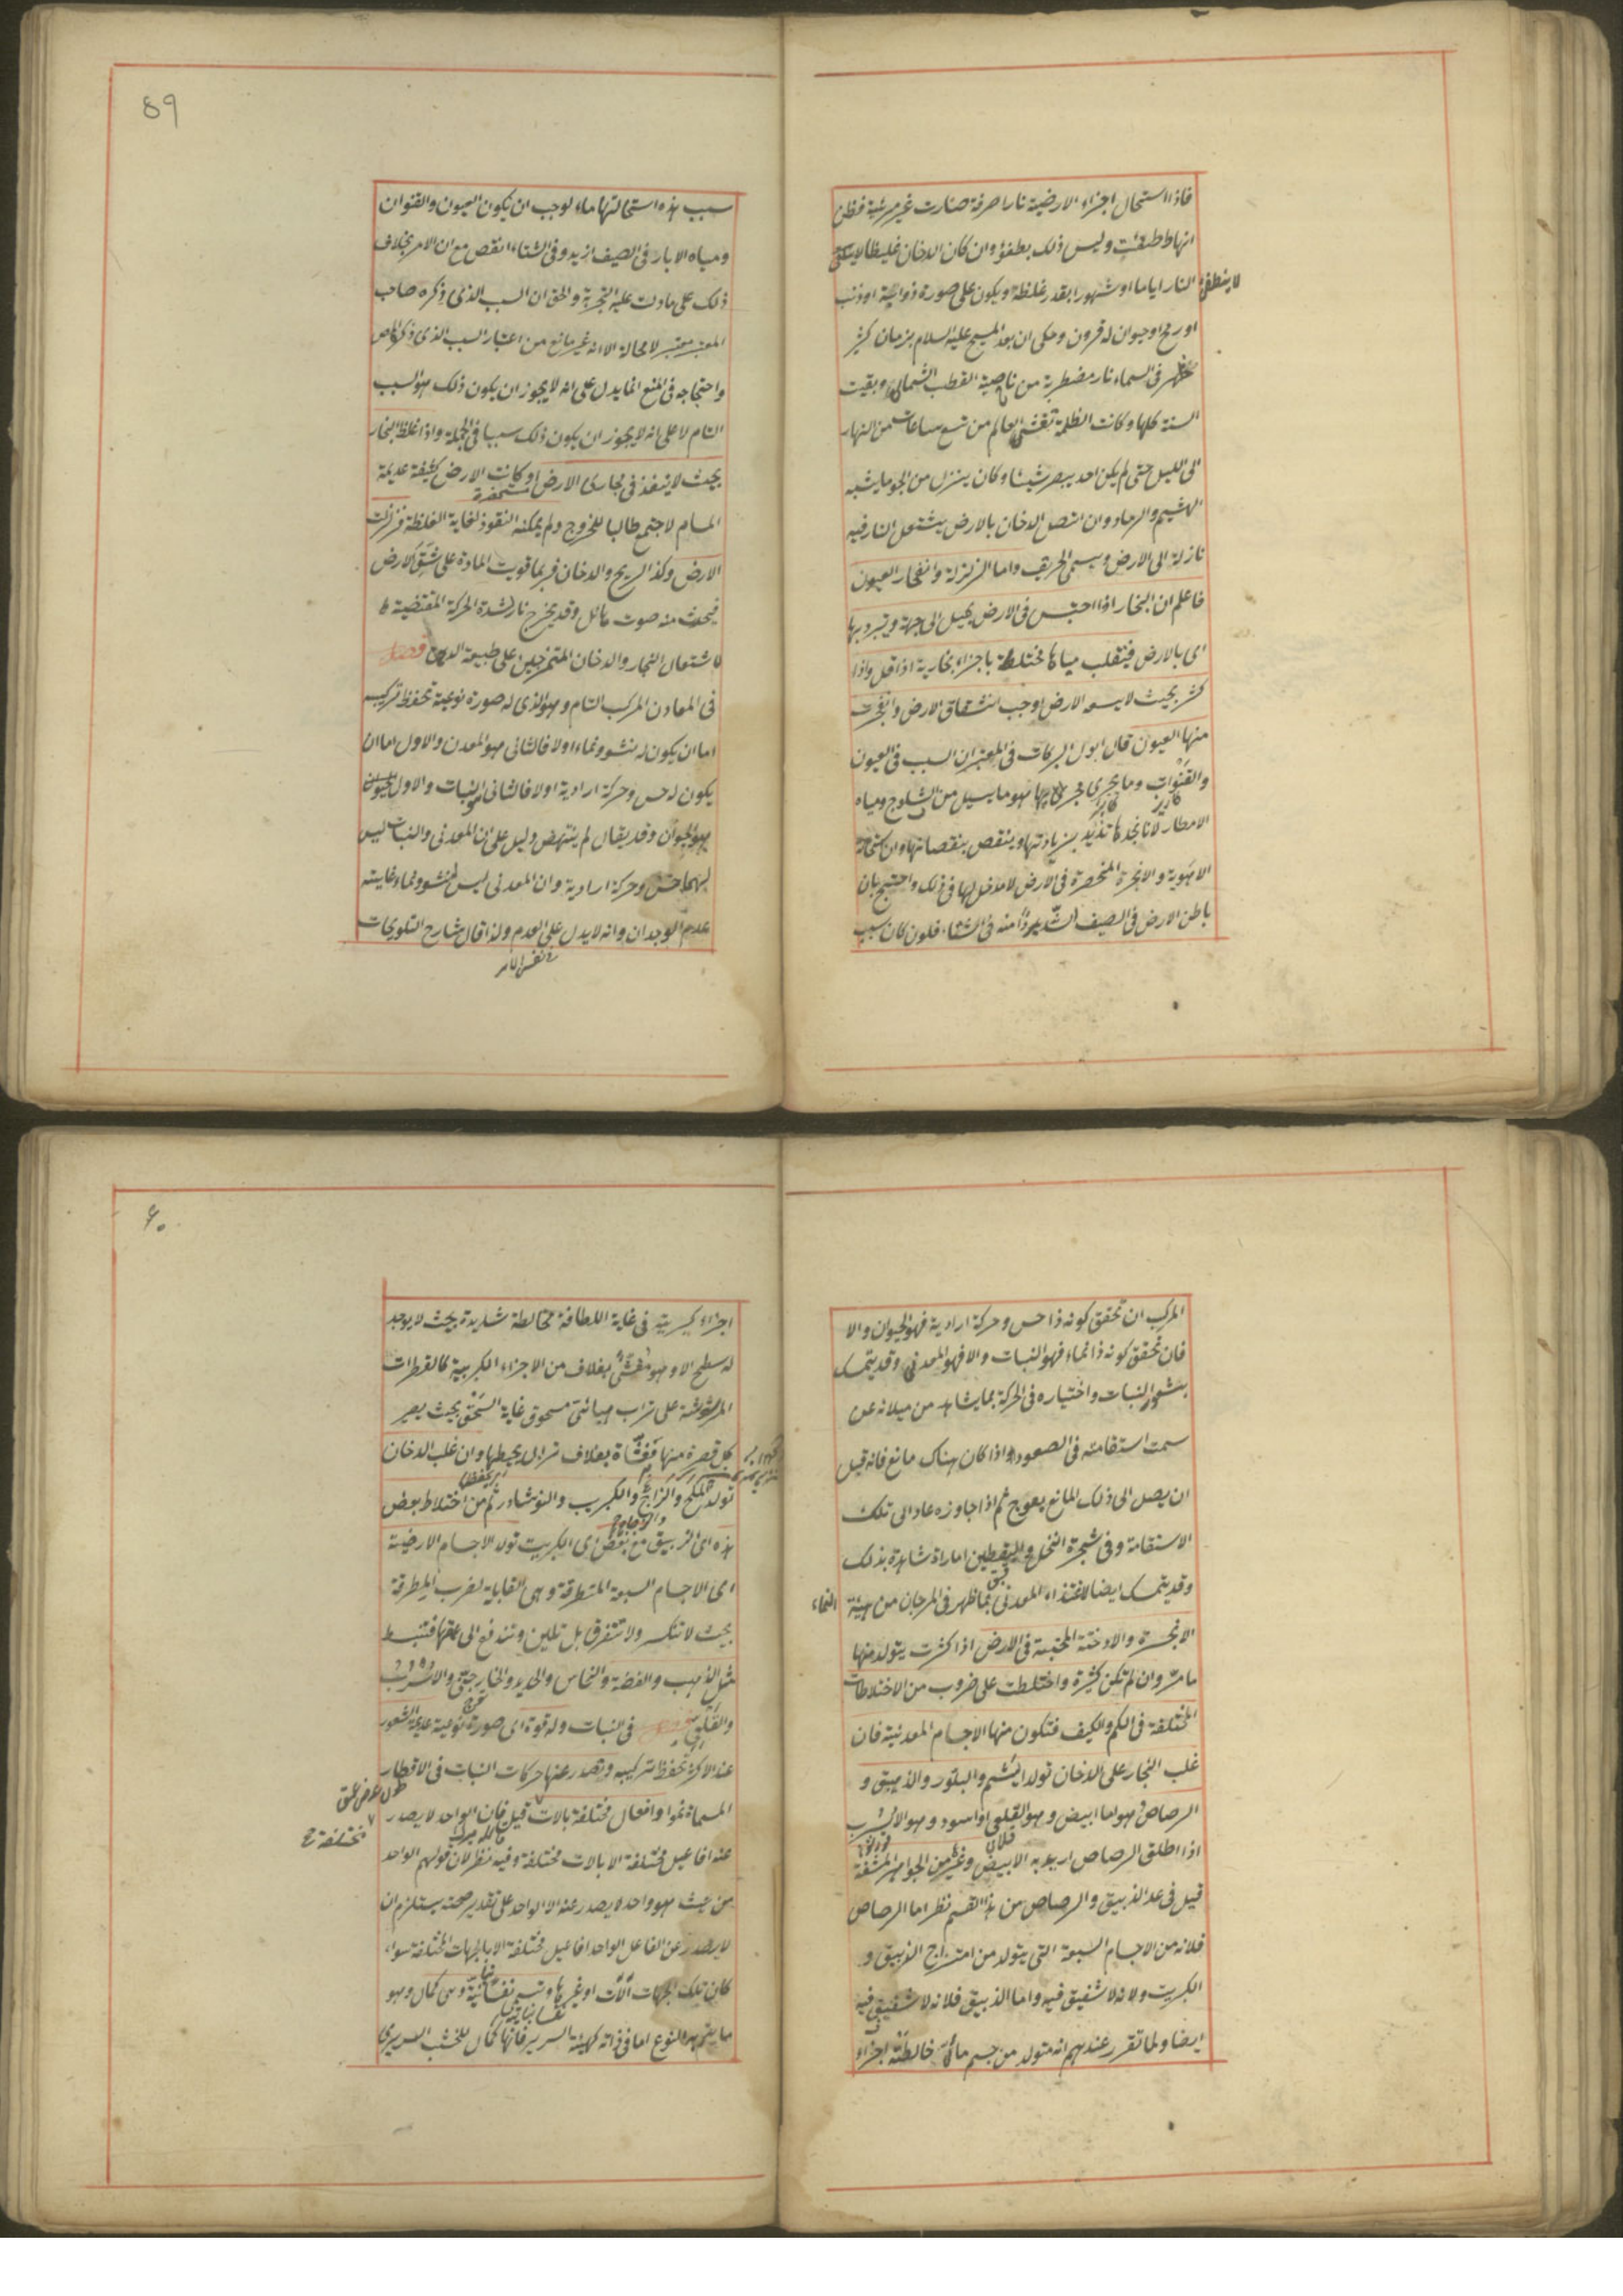 فاذا استحال اجزاء الارضية نارا صرفة صارت غير مرئية فظن
انها طفئت وليس ذلك بطفؤ وان كان الدخان غليظا لا
لا ينطفئ
النار اياما او شهورا بقدر غلظه ويكون على صورة ذوابة او ذنب
او رمح او حيوان له قرون وحكى ان بعد المسيح عليه السلام بزمان كثير
ظهر في السماء نار مضطربة من ناحية القطب الشمالي وبقيت
السنة كلها وكانت الظلمة تغشى العالم من تسع ساعات من النهار
الى الليل حتى لم يكن احد يبصر شيئا وكان ينزل من الجو ما يشبه
الهشيم والرماد وان اتصل الدخان بالارض يشتعل النار فيه
نازلة الى الارض ويسمى الحريق واما الزلزلة وانفجار العيون
فاعلم ان البخار اذا احتبس في الارض يميل الى جهة ويتبرد بها
اى بالارض فينقلب مياها مختلطة باجزاء بخارية اذا قل واذا
كثر بحيث لا يسعه الارض اوجب انشقاق الارض وانفجرت
منها العيون قال ابو البركات في المعتبر ان السبب في العيون
والقنوات وما يجرى مجراها هو ما يسيل من الثلوج ومياه
الامطار لانا نجدها تزيد بزيادتها وينقص بنقصانها وان استحالة
الاهوية والابخرة المنحصرة في الارض لا مدخل لها في ذلك واحتج بان
باطن الارض في الصيف اشد بردا منه في الشتاء فلو كان سبب
59
سبب هذه استحالتها ماء لوجب ان يكون العيون والقنوات
ومياه الابار في الصيف ازيد وفى الشتاء انقص مع ان الامر بخلاف
ذلك على ما دلت عليه التجربة والحق ان السبب الذى ذكره صاحب
المعتبر معتبر لا محالة الا انه غير مانع من اعتبار السبب الذى ذكره المص
واحتجاجه في المنع انما يدل على انه لا يجوز ان يكون ذلك هو السبب
التام لا على انه لا يجوز ان يكون ذلك سببا في الجملة واذا غلظ البخار
بحيث لا ينفذ في مجارى الارض او كانت الارض كثيفة عديمة
مستحصفة
المسام لاجتمع طالبا للخروج ولم يمكنه النفوذ لغاية الغلظة فزلزلت
الارض وكذا الريح والدخان فربما قويت المادة على شق الارض
فيحدث منه صوت هائل وقد يخرج نار لشدة الحركة المقتضية
لاشتعال البخار والدخان الممتزجين على طبيعة الدهن فصل
في المعادن المركب التام وهو الذى له صورة نوعية تحفظ تركيبه
اما ان يكون له نشو ونماء اولا فالثانى هو المعدن والاول اما ان
يكون له حس وحركة ارادية اولا فالثانى هو النبات والاول
هو الحيوان وقد يقال لم ينتهض دليل على ان المعدنى والنبات ليس
لهما حس وحركة ارادية وان المعدنى ليس له نشو ونماء غايته
عدم الوجدان وانه لا يدل على العدم ولذا قال شارح التلويحات
في نفس الامر
المركب ان تحقق كونه ذا حس وحركة ارادية فهو الحيوان والا
فان تحقق كونه ذا نماء فهو النبات والا فهو المعدنى وقد يتمسك
بشعور النبات واختياره في الحركة بما يشاهد من ميلانه عن
سمت استقامته في الصعود اذا كان هناك مانع فانه قبل
ان يصل الى ذلك المانع يعوج ثم اذا جاوزه عاد الى تلك
الاستقامة وفى شجرة النخل واليقطين امارات شاهدة بذلك
وقد يتمسك ايضا لاغتذاء المعدنى بما ظهر في المرجان من هيئة
النماء
الابخرة والادخنة المحتبسة في الارض اذا كثرت يتولد منها
ما مر وان لم تكن كثيرة واختلطت على ضروب من الاختلاطات
المختلفة في الكم والكيف فتكون منها الاجسام المعدنية فان
غلب البخار على الدخان تولد اليشم والبلور والزيبق و
الرصاص وهو اما ابيض وهو القلعى او اسود وهو الاسرب
اذا اطلق الرصاص اريد به الابيض وغيرهن من الجواهر المشفة
قيل في عد الزيبق والرصاص من هذا القسم نظر اما الرصاص
فلانه من الاجسام السبعة التى يتولد من امتزاج الزيبق و
الكبريت ولانه لا شفيف فيه واما الزيبق فلانه لا شفيف فيه
ايضا ولما تقرر عندهم انه متولد من جسم مائى خالطته اجزاء
٦٠
اجزاء كبريتية في غاية اللطافة مخالطة شديدة بحيث لا يوجد
له سطح الا وهو مغشى بغلاف من الاجزاء الكبريتية كالقطرات
المرشوشة على تراب هبائى مسحوق غاية السحق بحيث يصير
كل قطرة منها مغشاة بغلاف ترابى يحيط بها وان غلب الدخان
تولد الملح والزاج والكبريت والنوشادر ثم من اختلاط بعض
هذه اى الزيبق مع بعض اى الكبريت تولد الاجسام الارضية
اى الاجسام السبعة المتطرقة وهى القابلية لضرب المطرقة
بحيث لا تنكسر ولا تتفرق بل تلين وتندفع الى عمقها فتنبسط
مثل الذهب والفضة والنحاس والحديد والخارصينى والاسرب
والقلعى فصل في النبات وله قوة اى صورة نوعية عديمة الشعور
عند الاكثر تحفظ تركيبه وتصدر عنها حركات النبات في الاقطار
طول عرض عمق
المسماة نموا وافعال مختلفة بالات قيل فان الواحد لا يصدر
مختلفة
عنه افاعيل مختلفة الا بالات مختلفة وفيه نظر لان قولهم الواحد
من حيث هو واحد لا يصدر عنه الا الواحد على تقدير صحته يستلزم ان
لا يصدر عن الفاعل الواحد افاعيل مختلفة الا بالجهات المختلفة سواء
كان تلك الجهات آلات او غيرها وتسمى نفسا نباتية وهى كمال وهو
ما يتم به النوع اما في ذاته كهيئة السرير فانها كمال للخشب السريرى